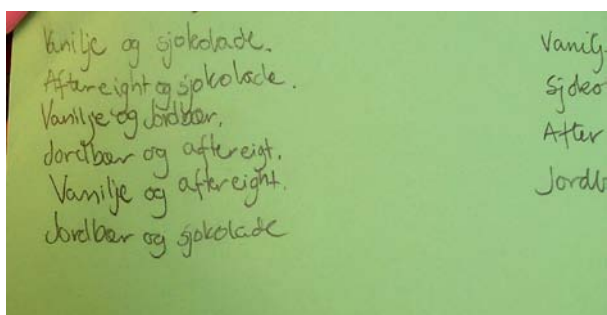 Vanilje og sjokolade.
Aftereight og sjokolade.
Vanilje og Jordbær.
Jordbær og aftereigt.
Vanilje og aftereight.
Jordbær og sjokolade
Vanilj
Sjoko
After
Jordb